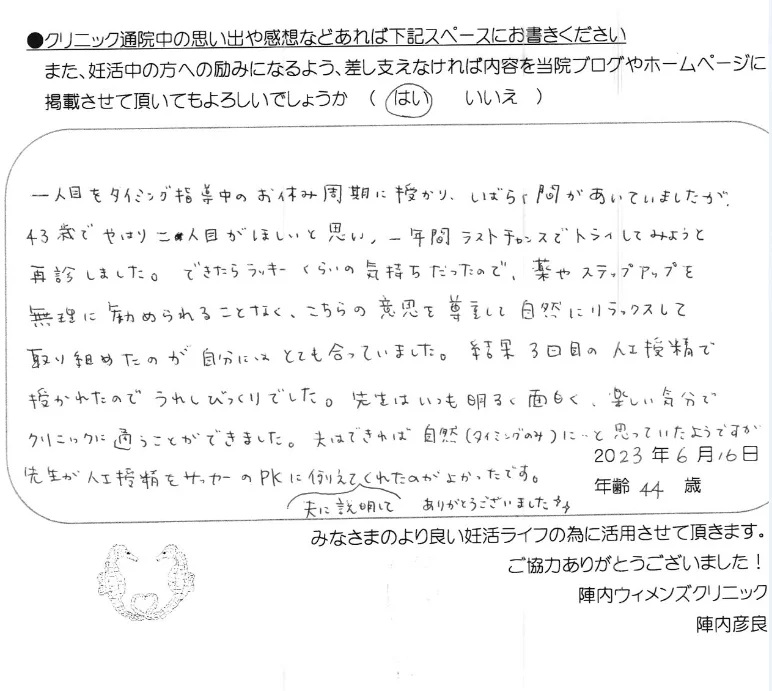 ●クリニック通院中の思い出や感想などあれば下記スペースにお書きください
また、妊活中の方への励みになるよう、差し支えなければ内容を当院ブログやホームページに
掲載させて頂いてもよろしいでしょうか （ はい いいえ ）
一人目をタイミング指導中のお休み周期に授かり、しばらく間があいていましたが、
43歳でやはり二人目がほしいと思い、一年間ラストチャンスでトライしてみようと
再診しました。できたらラッキーくらいの気持ちだったので、薬やステップアップを
無理に勧められることなく、こちらの意思を尊重して自然にリラックスして
取り組めたのが自分にはとても合っていました。結果3回目の人工授精で
授かれたのでうれしびっくりでした。先生はいつも明るく面白く、楽しい気分で
クリニックに通うことができました。夫はできれば自然(タイミングのみ)に…と思っていたようですが
先生が人工授精をサッカーのPKに例えてくれたのがよかったです。
夫に説明して ありがとうございました
2023年6月16日
年齢 44 歳
みなさまのより良い妊活ライフの為に活用させて頂きます。
ご協力ありがとうございました！
陣内ウィメンズクリニック
陣内彦良